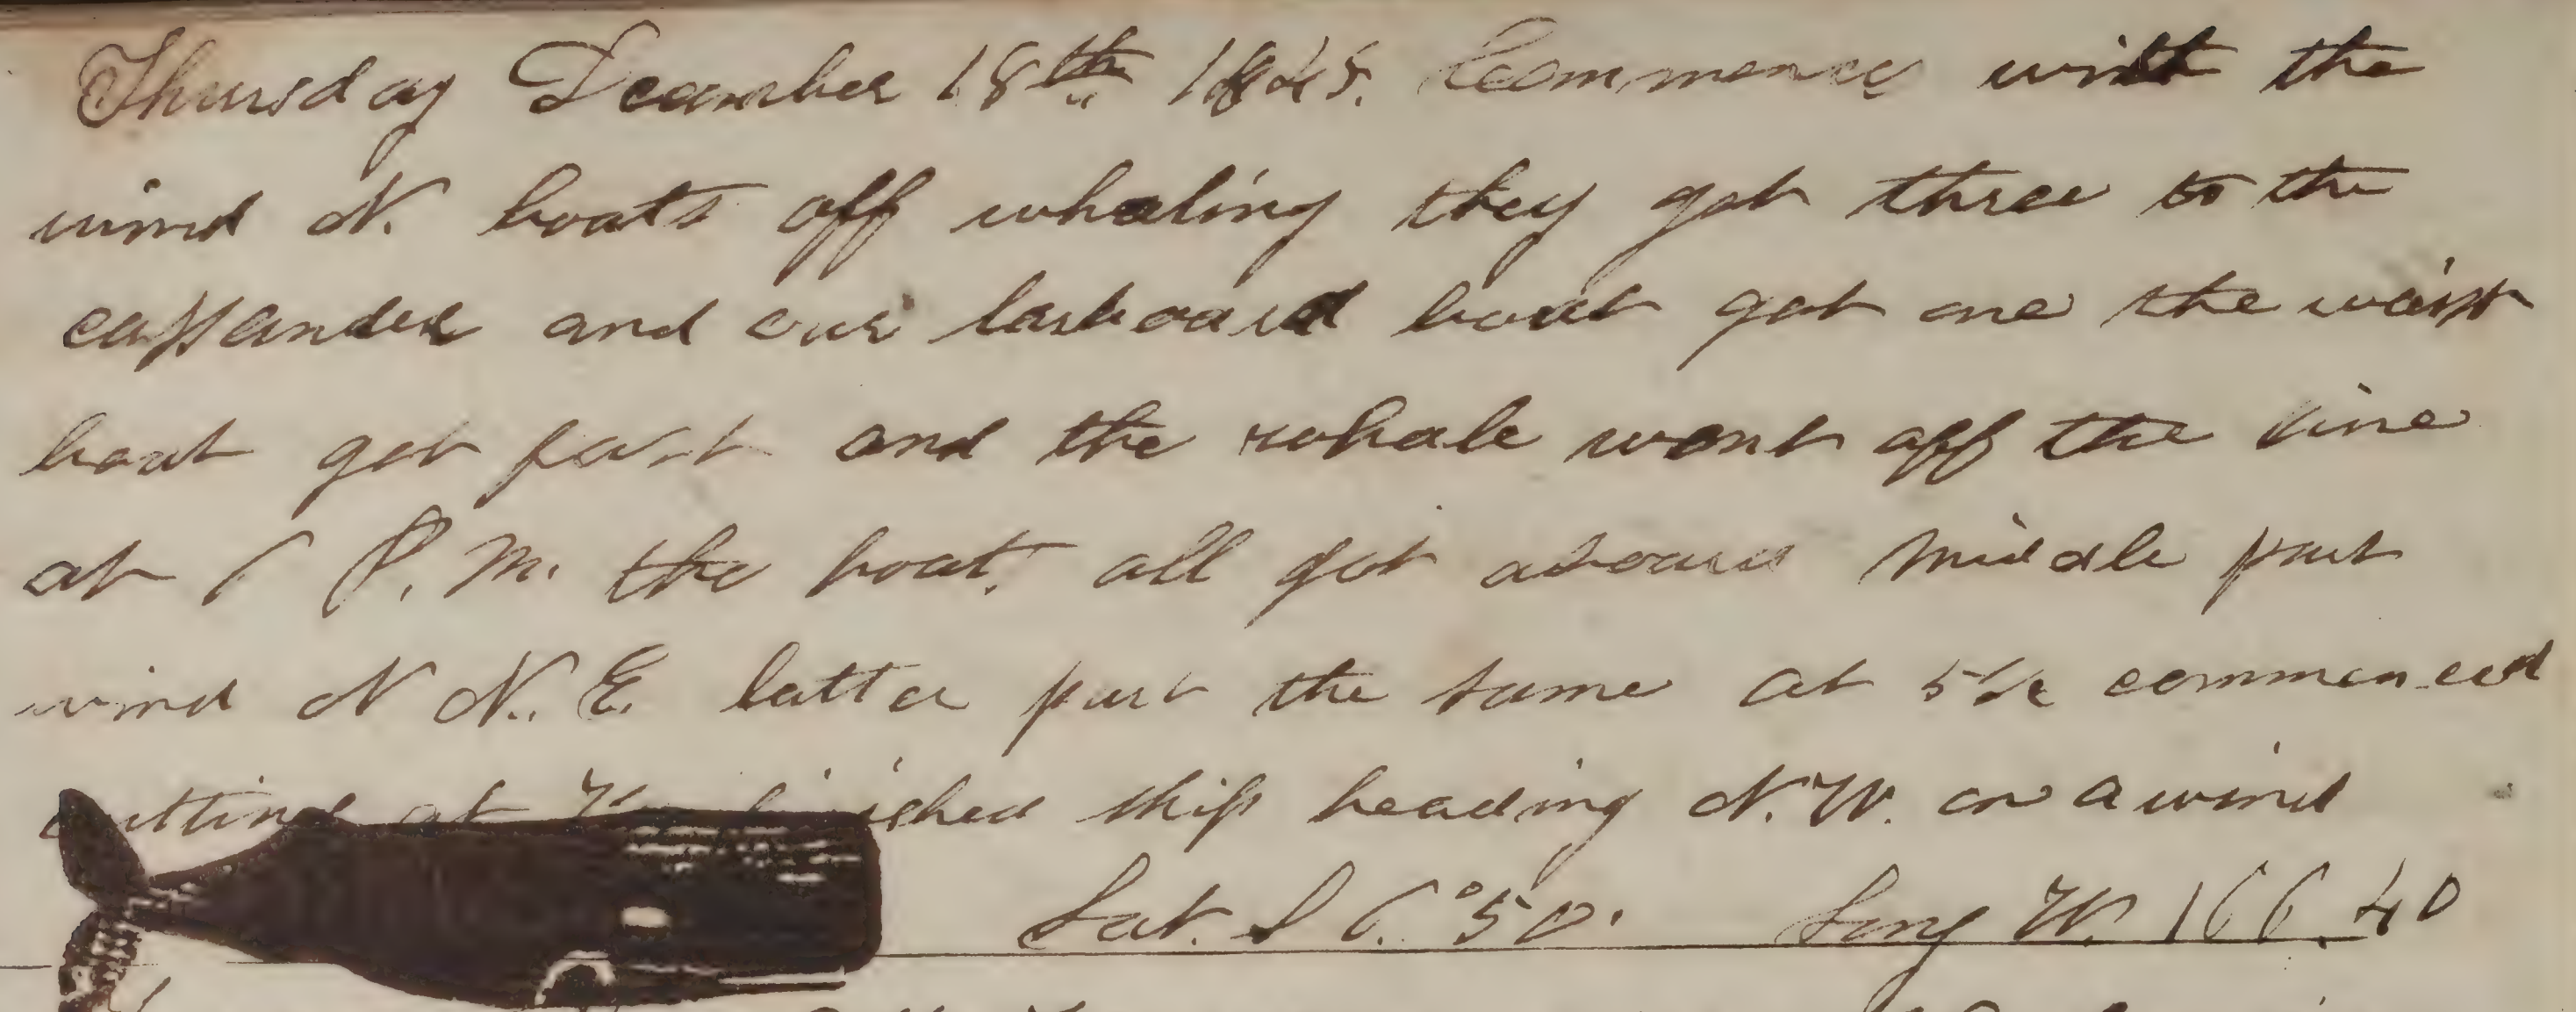 Thursday December 18th 1845. Commence with the
wind N. boats off whaling they got three to the
cassander and our larboard boat got one the waist
boat got fast and the whale went off the line
at 6 P. M. the boat. all got aboard Middle part
wind N N. E. latter part the same at 5 commenced
cutting at finished ship heading N. W. on a wind
Lat. S 6.°50. Long W. 166.40